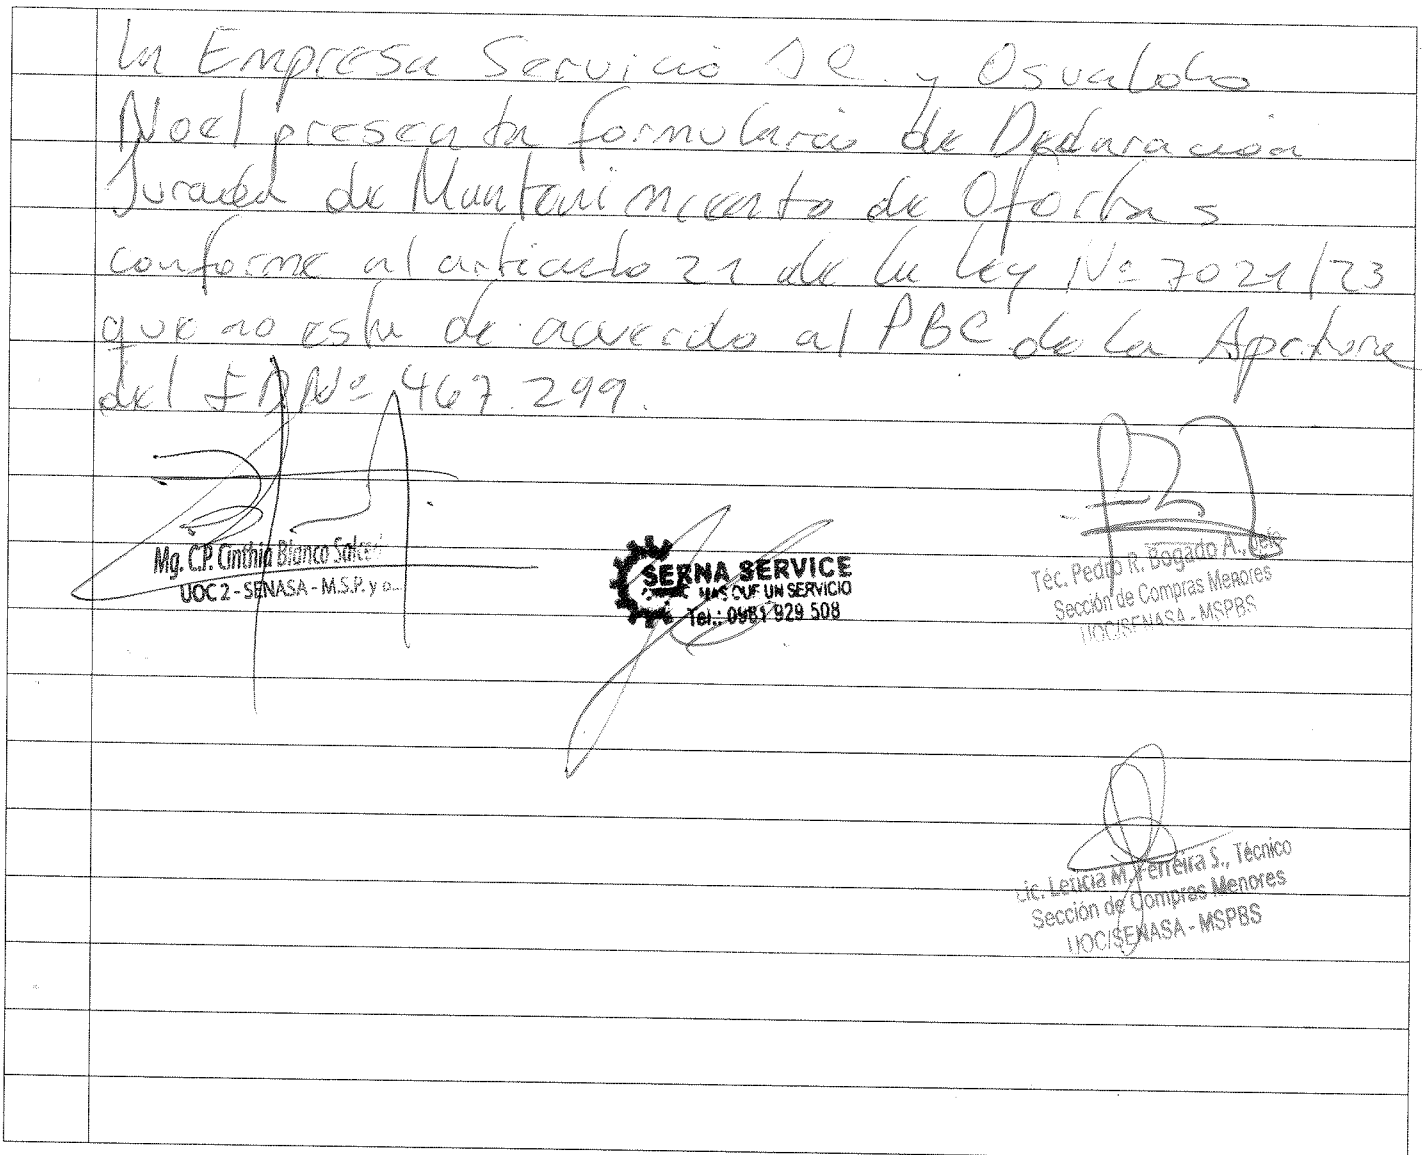 La Empresa Servicio DC y Osvaldo
Noel presenta formulario de Declaración
Jurada de Mantenimiento de Ofertas
conforme al articulo 21 de la ley Nº 7021/23
que no esta de acuerdo al PBC de la Apertura
del ID Nº 467.299.
Mg. C.P. Cinthia Blanco
UOC 2 - SENASA - M.S.P. y
SERNA SERVICE
MAS QUE UN SERVICIO
Tel.: 0981 929 508
Téc. Pedro R. Bogado A., Jefe
Sección de Compras Menores
UOC/SENASA - MSPBS
Lic. Leticia M. Ferreira S., Técnico
Sección de Compras Menores
UOC/SENASA - MSPBS